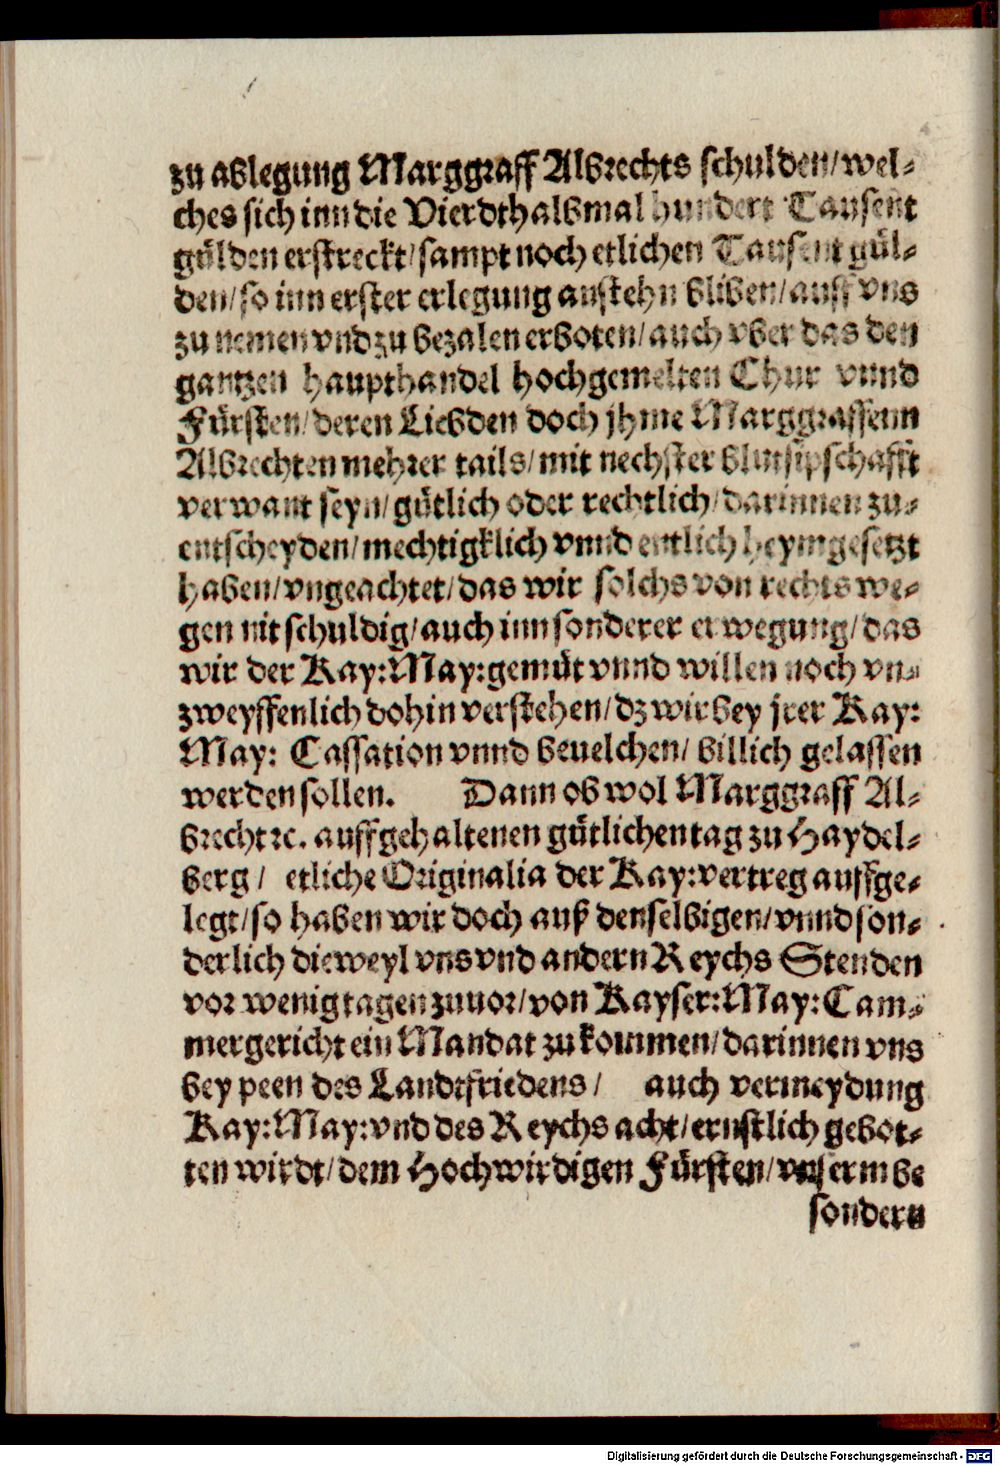 zu ablegung Marggraff Albrechts schulden/wel-
ches sich inn die Vierdthalbmal hundert Tausent
gülden erstreckt/sampt noch etlichen Tausent gül-
den/so inn erster erlegung anstehn bliben/auff vns
zu nemen vnd zu bezalen erboten/auch vber das den
gantzen haupthandel hochgemelten Chur vnnd
Fürsten/deren Liebden doch jhme Marggraffenn
Albrechten mehrer tails/mit nechster blutsipschafft
verwant seyn/gütlich oder rechtlich/darinnen zu-
entscheyden/mechtigklich vnnd entlich heymgesetzt
haben/vngeachtet/das wir solchs von rechts we-
gen nit schuldig/auch inn sonderer erwegung/das
wir der Kay:May:gemüt vnnd willen noch vn-
zweyffenlich dohin verstehen/dz wir bey jrer Kay:
May: Cassation vnnd beuelchen/billich gelassen
werden sollen. Dann ob wol Marggraff Al-
brecht rc. auffgehaltenen gütlichen tag zu Haydel-
berg/ etliche Originalia der Kay:vertreg auffge-
legt/so haben wir doch auß denselbigen/vnnd son-
derlich dieweyl vns vnd andern Reychs Stenden
vor wenig tagen zuuor/von Kayser:May:Cam-
mergericht ein Mandat zu kommen/darinnen vns
bey peen des Landtfriedens/ auch vermeydung
Kay:May:vnd des Reychs acht/ernstlich gebot-
ten wirdt/dem Hochwirdigen Fürsten/vnserm be
sondern
Digitalisierung gefördert durch die Deutsche Forschungsgemeinschaft - DFG